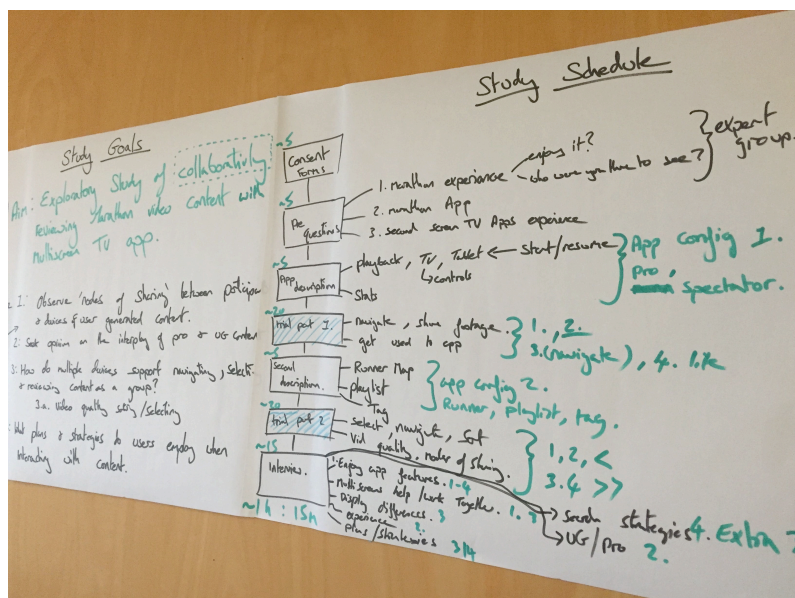 Study Goals
Aim: Exploratory Study of collaboratively
reviewing Marathon video content with
Multiscreen TV app.
1: Observe 'nodes of Sharing' between
& devices & user generated content.
2: Seek opinion on the interplay of pro & UG content
3: How do multiple devices support navigating,
& reviewing content as a group?
3.a. Video quality /selecting
What plans & strategies do users employ when
interacting with content.
Study Schedule
~5
Consent
Forms
~5
Pre
questions
1. Marathon experience
enjoy it?
who were you there to see?
expert
group.
2. marathon App
3. second screen TV Apps experience
~5
App
description
playback, TV, Tablet
Start/resume
controls
Stats
App config 1.
Pro,
spectator.
~20
trial part 1.
navigate, show footage
get used to app
1., 2.
3.(navigate), 4.
~5
Second
description.
Runner Map
playlist
Tag
app config 2.
Runner, playlist, tag.
~20
trial part 2
select, navigate, sort
Vid quality, nodes of sharing.
1, 2, <
3.4 >>
~15
Interview.
1. Enjoy app features. 1-4
Multiscreens help /work Together. 1.
Display differences. 3
experience 2.
Plans /strategies 3/4
search strategies 4. Extra
UG/Pro 2.
~1h : 15m